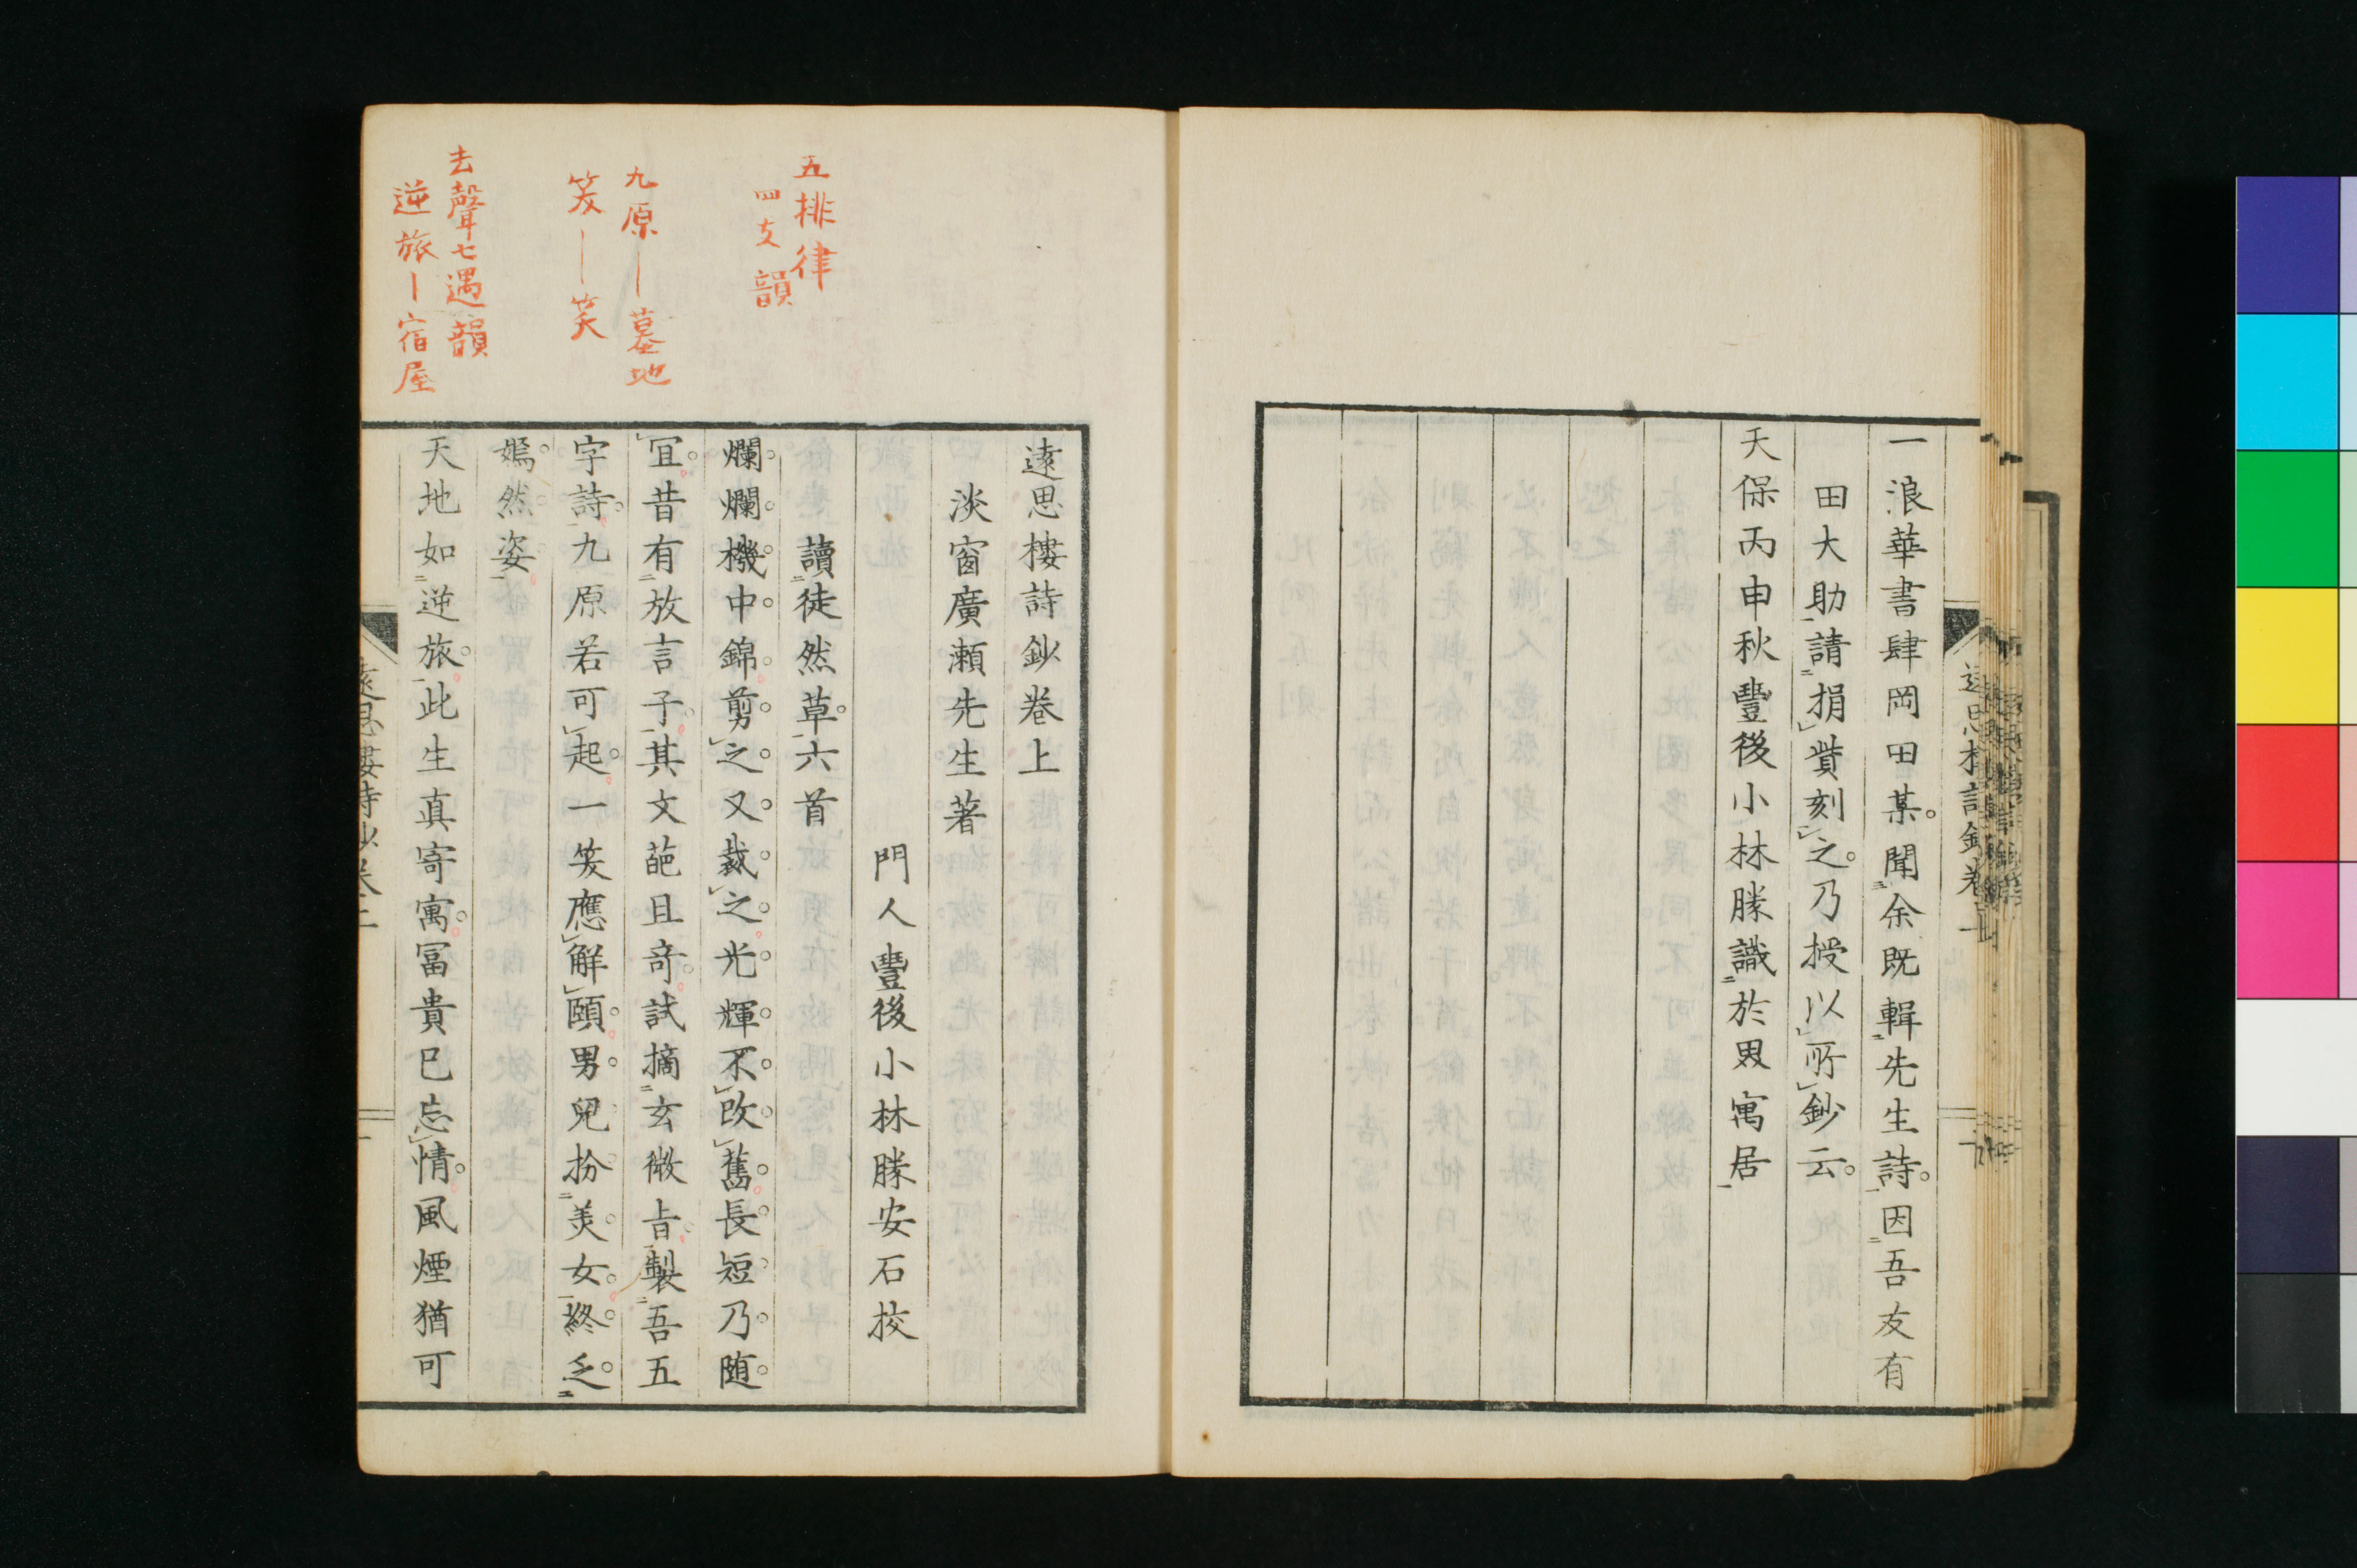 一浪華書肆岡田某。聞余既輯先生詩。因吾友有
田大助請捐貲刻之。乃授以所鈔云。
天保丙申秋豐後小林勝識於男寓居
遠思樓詩鈔卷上
淡窗廣瀨先生著
門人豐後小林勝安石挍
五排律
四支韻
讀徒然草六首
爛爛機中錦剪之又裁之光輝不改舊長短乃隨
宜昔有放言子其文葩且奇試摘玄微旨製吾五
九原―墓地
笶―笑
字詩九原若可起一笶應解頤男兒扮美女終乏
嫣然姿
去聲七遇韻
逆旅―宿屋
天地如逆旅此生真寄寓冨貴已忘情風煙猶可
遠思樓詩鈔卷上